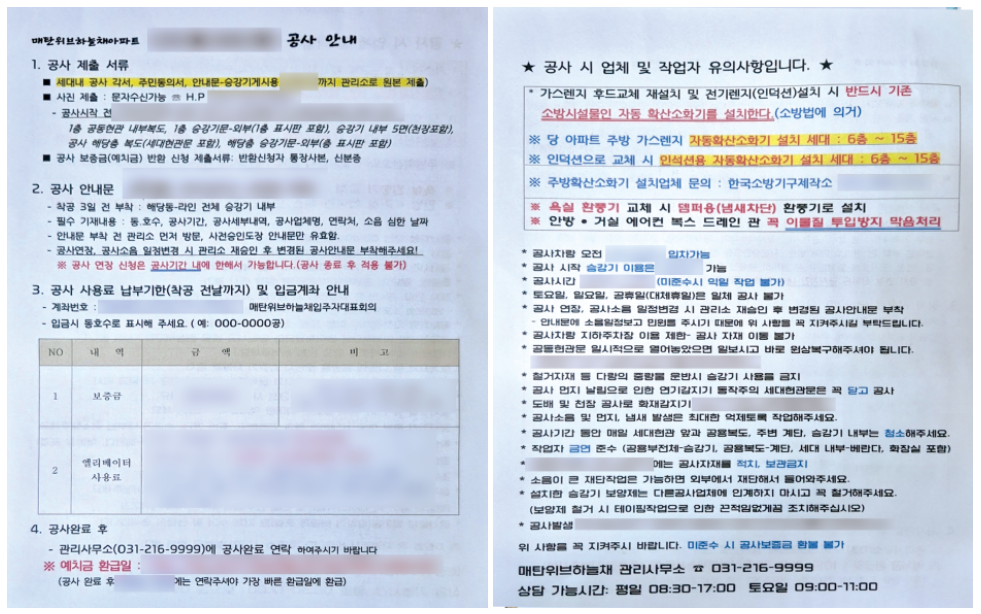 매탄위브하늘채아파트 공사 안내
1. 공사 제출 서류
■ 세대내 공사 각서, 주민동의서, 안내문-승강기게시용 까지 관리소로 원본 제출)
■ 사진 제출 : 문자수신가능 ☎ H.P
- 공사시작 전
1층 공동현관 내부복도, 1층 승강기문-외부(1층 표시판 포함), 승강기 내부 5면(천장포함),
공사 해당층 복도(세대현관문 포함), 해당층 승강기문-외부(층 표시판 포함)
■ 공사 보증금(예치금) 반환 신청 제출서류: 반환신청자 통장사본, 신분증
2. 공사 안내문
- 착공 3일 전 부착 : 해당동-라인 전체 승강기 내부
- 필수 기재내용 : 동.호수, 공사기간, 공사세부내역, 공사업체명, 연락처, 소음 심한 날짜
- 안내문 부착 전 관리소 먼저 방문, 사전승인도장 안내문만 유효함.
- 공사연장, 공사소음 일정변경 시 관리소 재승인 후 변경된 공사안내문 부착해주세요!
※ 공사 연장 신청은 공사기간 내에 한해서 가능합니다.(공사 종료 후 적용 불가)
3. 공사 사용료 납부기한(착공 전날까지) 및 입금계좌 안내
- 계좌번호 : 매탄위브하늘채입주자대표회의
- 입금시 동호수로 표시해 주세요. ( 예: 000-0000공)
NO 내 역 금 액 비 고
1 보증금
2 엘리베이터
사용료
4. 공사완료 후
- 관리사무소(031-216-9999)에 공사완료 연락 하여주시기 바랍니다
※ 예치금 환급일 :
(공사 완료 후 에는 연락주셔야 가장 빠른 환급일에 환급)
★ 공사 시 업체 및 작업자 유의사항입니다. ★
* 가스렌지 후드교체 재설치 및 전기렌지(인덕션)설치 시 반드시 기존
소방시설물인 자동 확산소화기를 설치한다.(소방법에 의거)
※ 당 아파트 주방 가스렌지 자동확산소화기 설치 세대 : 6층 ~ 15층
※ 인덕션으로 교체 시 인석션용 자동확산소화기 설치 세대 : 6층 ~ 15층
※ 주방확산소화기 설치업체 문의 : 한국소방기구제작소
※ 욕실 환풍기 교체 시 뎀퍼용(냄새차단) 환풍기로 설치
※ 안방 • 거실 에어컨 복스 드레인 관 꼭 이물질 투입방지 막음처리
* 공사차량 오전 입차가능
* 공사 시작 승강기 이용은 가능
* 공사시간 (미준수시 익일 작업 불가)
* 토요일, 일요일, 공휴일(대체휴일)은 일체 공사 불가
* 공사 연장, 공사소음 일정변경 시 관리소 재승인 후 변경된 공사안내문 부착
- 안내문에 소음일정보고 민원을 주시기 때문에 위 사항을 꼭 지켜주시길 부탁드립니다.
* 공사차량 지하주차장 이용 제한- 공사 자재 이동 불가
* 공동현관문 일시적으로 열어놓았으면 일보시고 바로 원상복구해주셔야 됩니다.
* 철거자재 등 다량의 중량물 운반시 승강기 사용을 금지
* 공사 먼지 날림으로 인한 연기감지기 동작주의 세대현관문은 꼭 닫고 공사
* 도배 및 천장 공사로 화재감지기
* 공사소음 및 먼지, 냄새 발생은 최대한 억제토록 작업해주세요.
* 공사기간 동안 매일 세대현관 앞과 공용복도, 주변 계단, 승강기 내부는 청소해주세요.
* 작업자 금연 준수 (공용부전체-승강기, 공용복도-계단, 세대 내부-베란다, 화장실 포함)
* 에는 공사자재를 적치, 보관금지
* 소음이 큰 재단작업은 가능하면 외부에서 재단해서 들어와주세요.
* 설치한 승강기 보양제는 다른공사업체에 인계하지 마시고 꼭 철거해주세요.
(보양제 철거 시 테이핑작업으로 인한 끈적임없게끔 조치해주십시오)
* 공사발생
위 사항을 꼭 지켜주시 바랍니다. 미준수 시 공사보증금 환불 불가
매탄위브하늘채 관리사무소 ☎ 031-216-9999
상담 가능시간: 평일 08:30-17:00 토요일 09:00-11:00